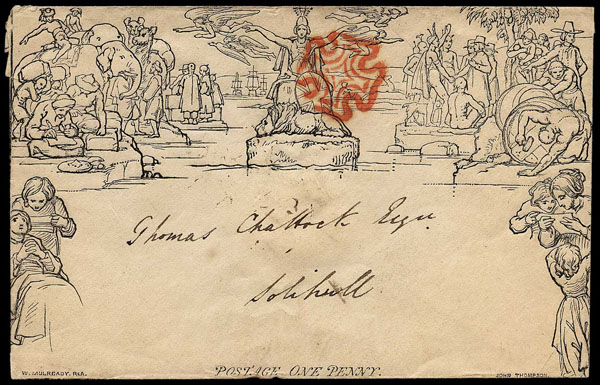 Thomas Chattock Esqre
Solihull
W. MULREADY. R.A.
POSTAGE ONE PENNY.
JOHN THOMPSON.